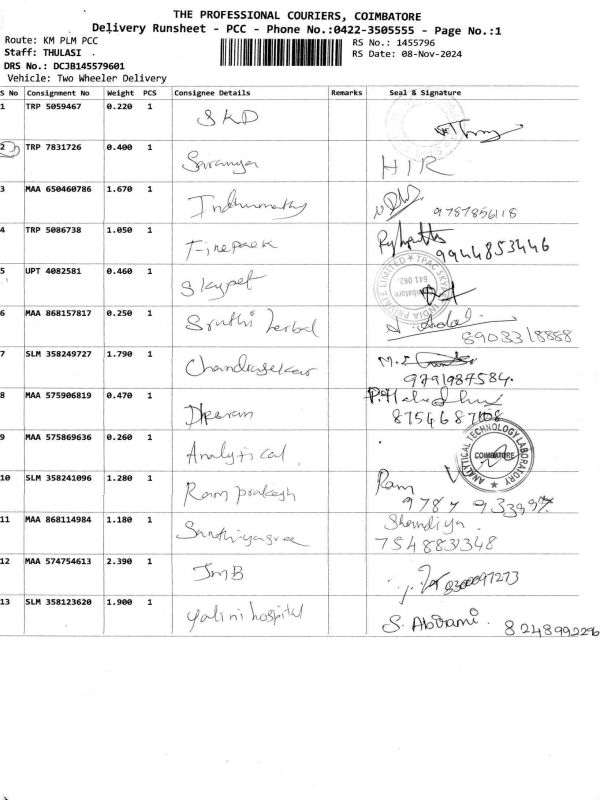 THE PROFESSIONAL COURIERS, COIMBATORE
Delivery Runsheet - PCC - Phone No.:0422-3505555 - Page No.:1
Route: KM PLM PCC
RS No.: 1455796
Staff: THULASI
RS Date: 08-Nov-2024
DRS No.: DCJB145579601
Vehicle: Two Wheeler Delivery
S No Consignment No Weight PCS Consignee Details Remarks Seal & Signature
1 TRP 5059467 0.220 1 SKD
2 TRP 7831726 0.400 1 Saranya HIR
3 MAA 650460786 1.670 1 Indhumathy 9787856118
4 TRP 5086738 1.050 1 Firepaek 9944853446
5 UPT 4082581 0.460 1 Skypet
INDIA PRIVATE LIMITED * TPAC-SKY
641 062
Coimbatore
6 MAA 868157817 0.250 1 Sruthi herbal 8903318868
7 SLM 358249727 1.790 1 Chandrasekar 9791987584.
8 MAA 575906819 0.470 1 Dheeran 8754687108
9 MAA 575869636 0.260 1 Analytical
ANALYTICAL TECHNOLOGY LABORATORY
COIMBATORE
10 SLM 358241096 1.280 1 Ram prakash Ram
11 MAA 868114984 1.180 1 Santhiyasree Shandiya.
7548831348
12 MAA 574754613 2.390 1 JMB 8300097273
13 SLM 358123620 1.900 1 Yalini hospital S. Abirami. 8248992296